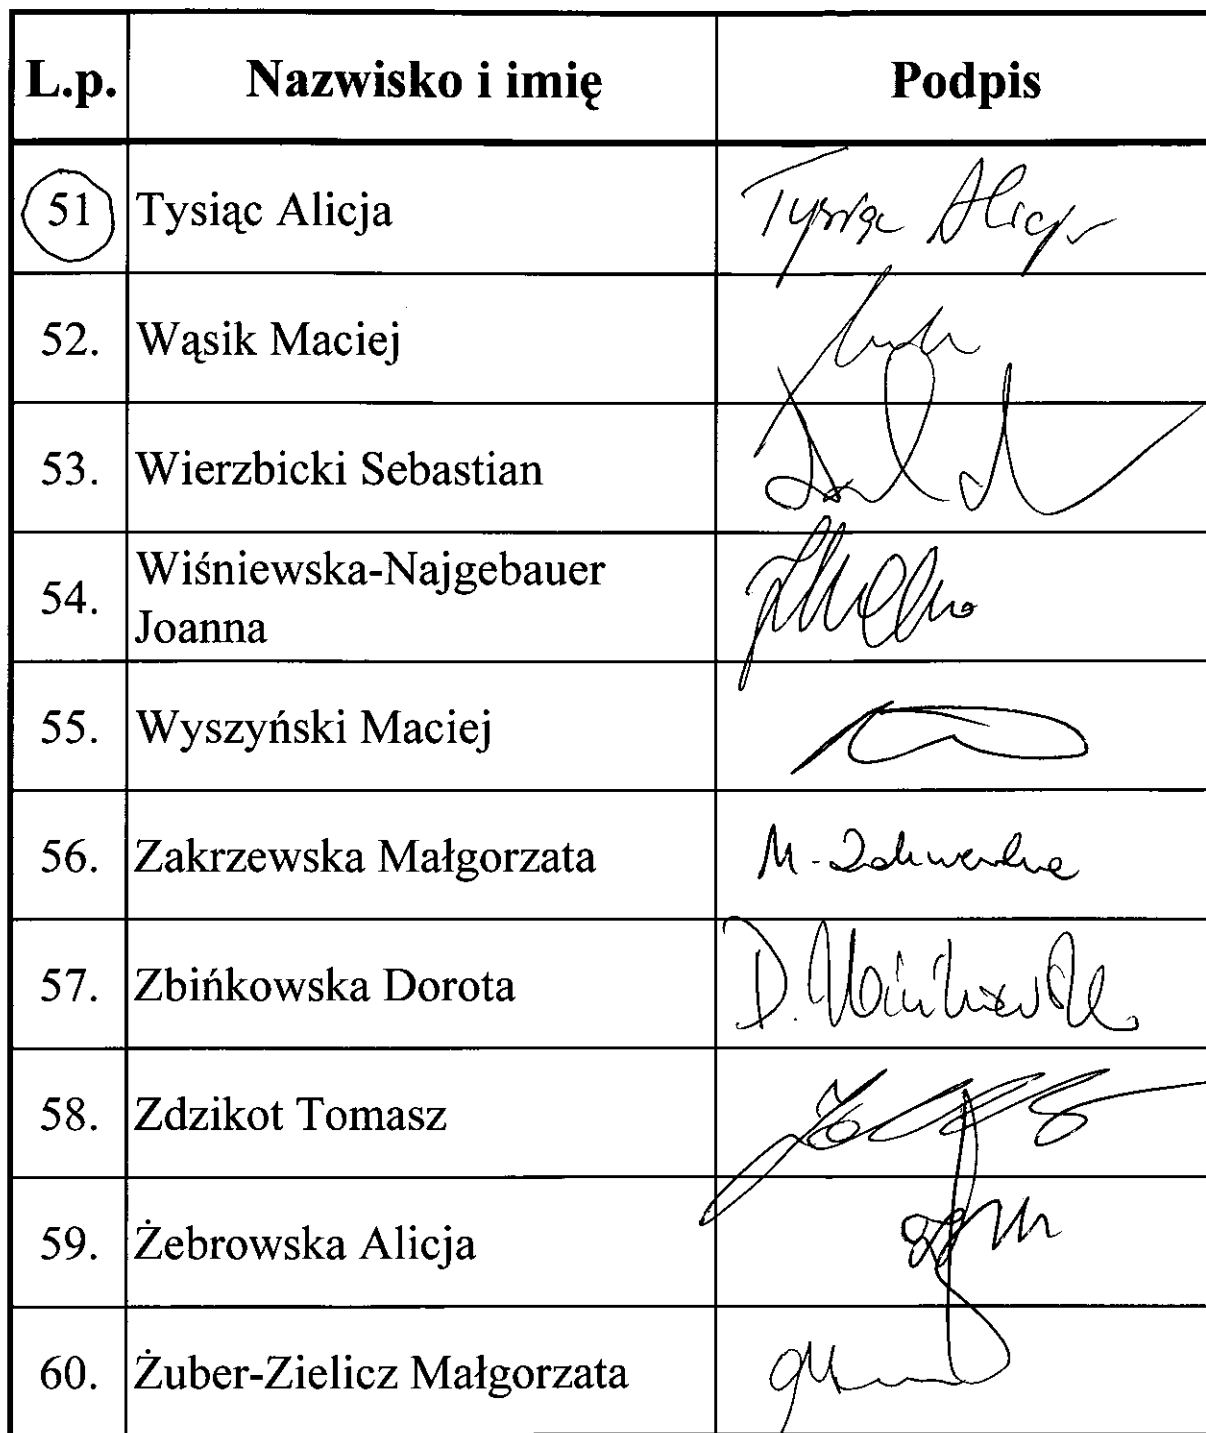 L.p. Nazwisko i imię Podpis
51 Tysiąc Alicja Tysiąc Alicja
52. Wąsik Maciej
53. Wierzbicki Sebastian
54. Wiśniewska-Najgebauer
Joanna
55. Wyszyński Maciej
56. Zakrzewska Małgorzata M. Zakrzewska
57. Zbińkowska Dorota D. Zbińkowska
58. Zdzikot Tomasz
59. Żebrowska Alicja
60. Żuber-Zielicz Małgorzata